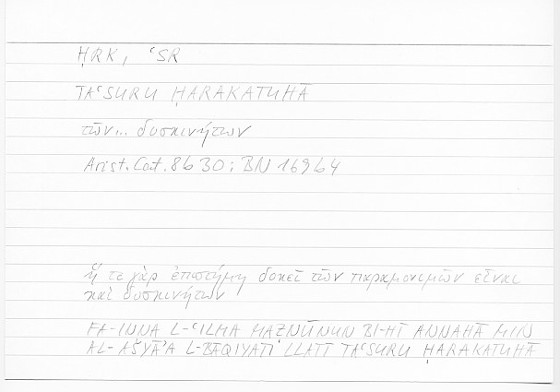 ḤRK, ʿSR
TAʿSURU ḤARAKATUHĀ
τῶν... δυσκινήτων
Arist. Cat. 8b30; BN 169b4
ἥ τε γὰρ ἐπιστήμη δοκεῖ τῶν παραμονίμων εἶναι
καὶ δυσκινήτων
FA-INNA L-ʿILMA MAẒNŪNUN BI-HĪ ANNAHĀ MIN
AL-AŠYĀʾA L-BĀQIYATI ʾLLATĪ TAʿSURU ḤARAKATUHĀ